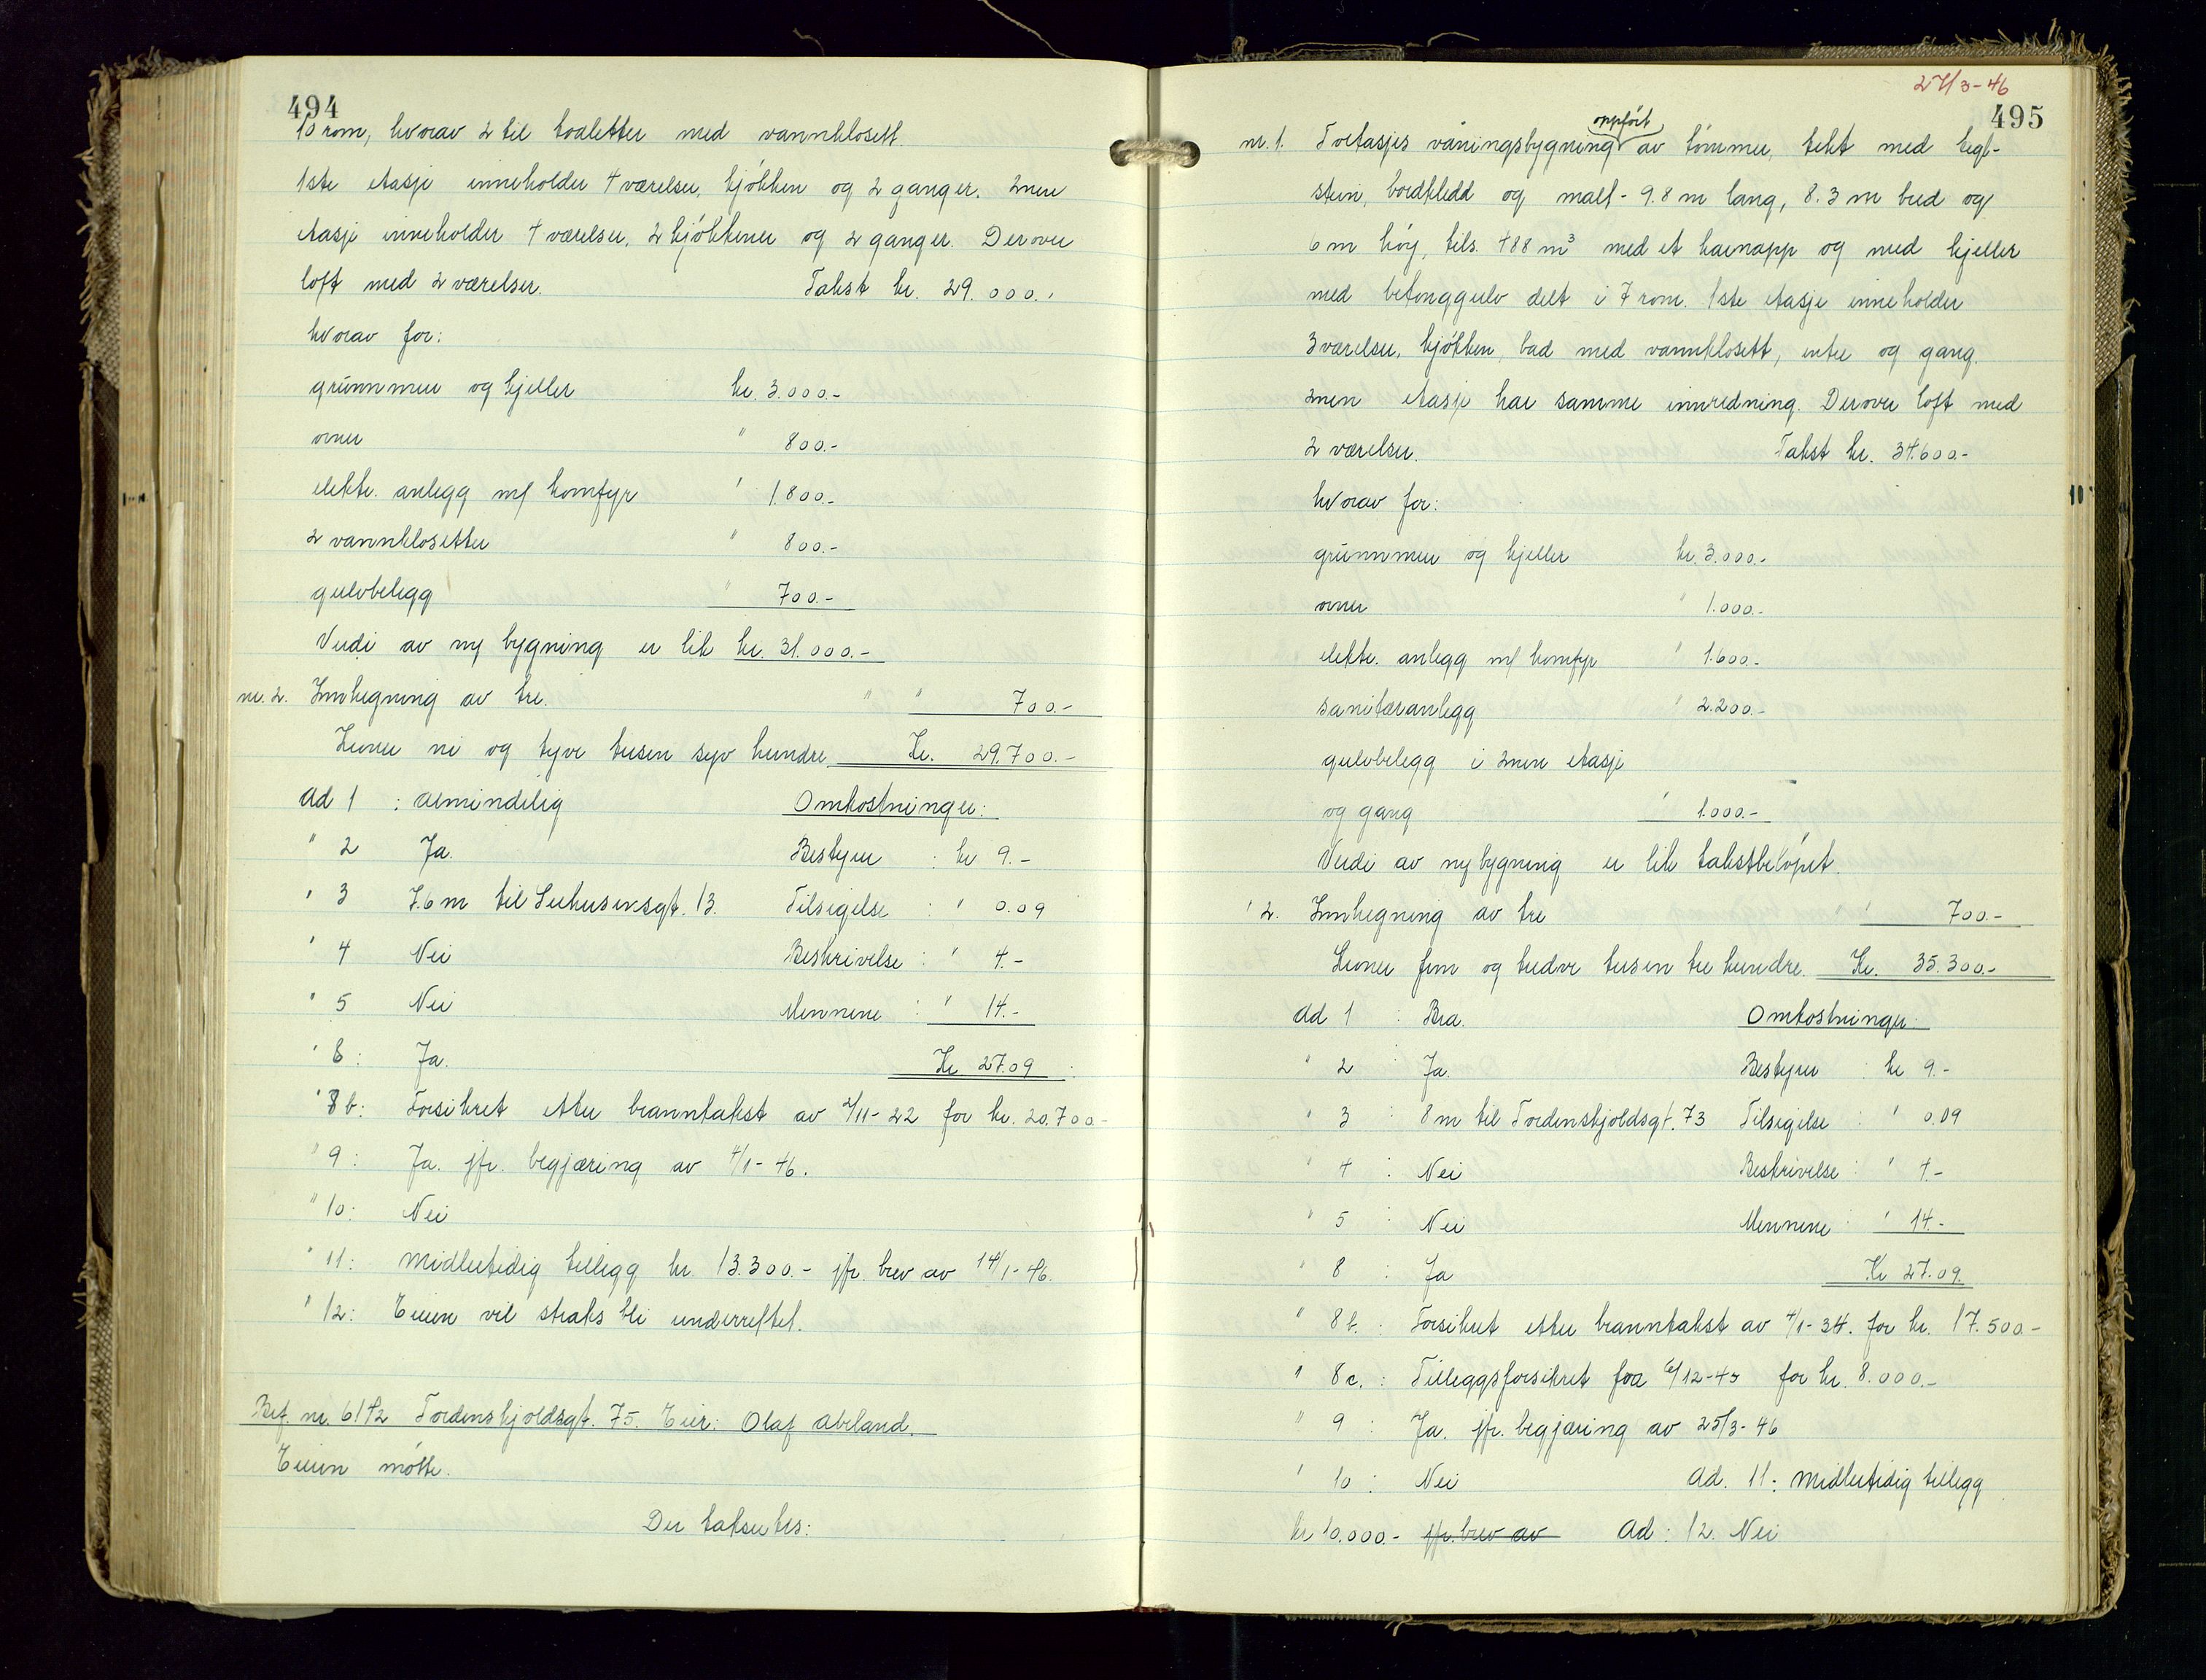 494
10 rom, hvorav 2 til toaletter med vannklosett.
1ste etasje inneholder 4 værelser, kjøkken og 2 ganger. 2nen
etasje inneholder 4 værelser, 2 kjøkkener og 2 ganger. Derover
loft med 2 værelser. Takst kr. 29.000.-
hvorav for:
grunnmur og kjeller kr. 3.000.-
ovner " 800.-
elektr. anlegg m/ komfyr " 1.800.-
2 vannklosetter " 800.-
gulvbelegg " 700.-
Verdi av ny bygning er lik kr. 31.000.-
nr. 2. Innhegning av tre. " " 700.-
Kroner ni og tyve tusen syv hundre Kr. 29.700.-
Ad 1 : Almindelig Omkostninger:
" 2 Ja. Bestyrer : kr 9.-
" 3 7.6 m til Seehusensgt. 13. Tilsigelse : " 0.09
" 4 Nei Beskrivelse : " 4.-
" 5 Nei Mennene : " 14.-
" 8 : Ja. Kr 27.09
" 8 b: Forsikret etter branntakst av 2/11-22 for kr. 20.700.-
" 9 : Ja. jfr. begjæring av 4/1-46.
" 10: Nei
" 11: Midlertidig tillegg kr 13.300.- jfr. brev av 14/1-46.
" 12: Eieren vil straks bli underrettet.
Brf. nr. 6142 Tordenskjoldsgt. 75. Eier: Olaf Abeland.
Eieren møtte.
Der takseres:
27/3-46
495
oppført
nr. 1. Toetasjes våningsbygning av tømmer, tekt med tegl-
stein, bordkledd og malt - 9.8 m lang, 8.3 m bred og
6 m høy, tils. 488 m³ med et karnapp og med kjeller
med betonggulv delt i 7 rom. 1ste etasje inneholder
3 værelser, kjøkken, bad med vannklosett, entre og gang.
2nen etasje har samme innredning. Derover loft med
2 værelser. Takst kr. 34.600.-
hvorav for:
grunnmur og kjeller kr. 3.000.-
ovner " 1.000.-
elektr. anlegg m/ komfyr " 1.600.-
sanitæranlegg " 2.200.-
gulvbelegg i 2nen etasje
og gang " 1.000.-
Verdi av ny bygning er lik takstbeløpet.
" 2. Innhegning av tre " " 700.-
Kroner fem og tredve tusen tre hundre. Kr. 35.300.-
Ad 1 : Bra. Omkostninger:
" 2 : Ja. Bestyrer : kr 9.-
" 3 : 8 m til Tordenskjoldsgt. 73 Tilsigelse : " 0.09
" 4 : Nei Beskrivelse : " 4.-
" 5 : Nei Mennene : " 14.-
" 8 : Ja Kr 27.09.
" 8 b. : Forsikret etter branntakst av 4/1-34. for kr. 17.500.-
" 8 c. : Tilleggsforsikret fra 6/12-45 for kr. 8.000.-
" 9 : Ja. jfr. begjæring av 25/3-46
" 10 : Nei Ad. 11: Midlertidig tillegg
kr 10.000.- jfr. brev av Ad : 12. Nei